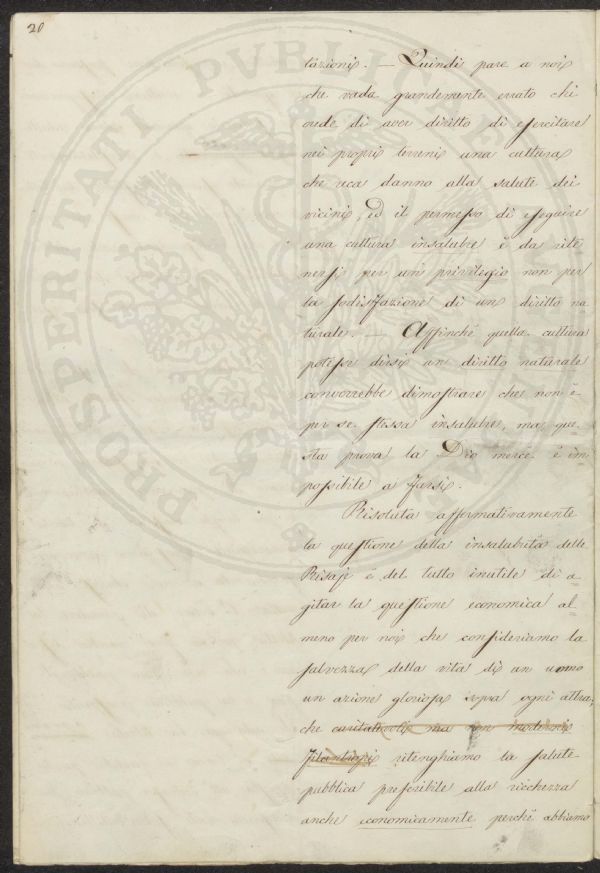 20
PROSPERITATI PVBLIC
tazioni. — Quindi pare a noi
che vada grandemente errato chi
crede di aver diritto di esercitare
nei propri terreni una cultura
che reca danno alla salute dei
vicini, ed il permesso di eseguire
una cultura insalubre è da rite
nersi per un privilegio non per
la sodisfazione di un diritto na
turale. — Affinchè quella cultura
potesse dirsi un diritto naturale
converrebbe dimostrare che non è
per se stessa insalubre, ma que
sta prova la Dio mercè è im
possibile a farsi.
Risoluta affermativamente
la questione della insalubrità delle
Risaje è del tutto inutile di a
gitar la questione economica al
meno per noi che consideriamo la
salvezza della vita di un uomo
un azione gloriosa sopra ogni altra;
che caritatevoli ma non moderni
filantropi ritenghiamo la salute
pubblica preferibile alla ricchezza
anche economicamente perchè abbiamo